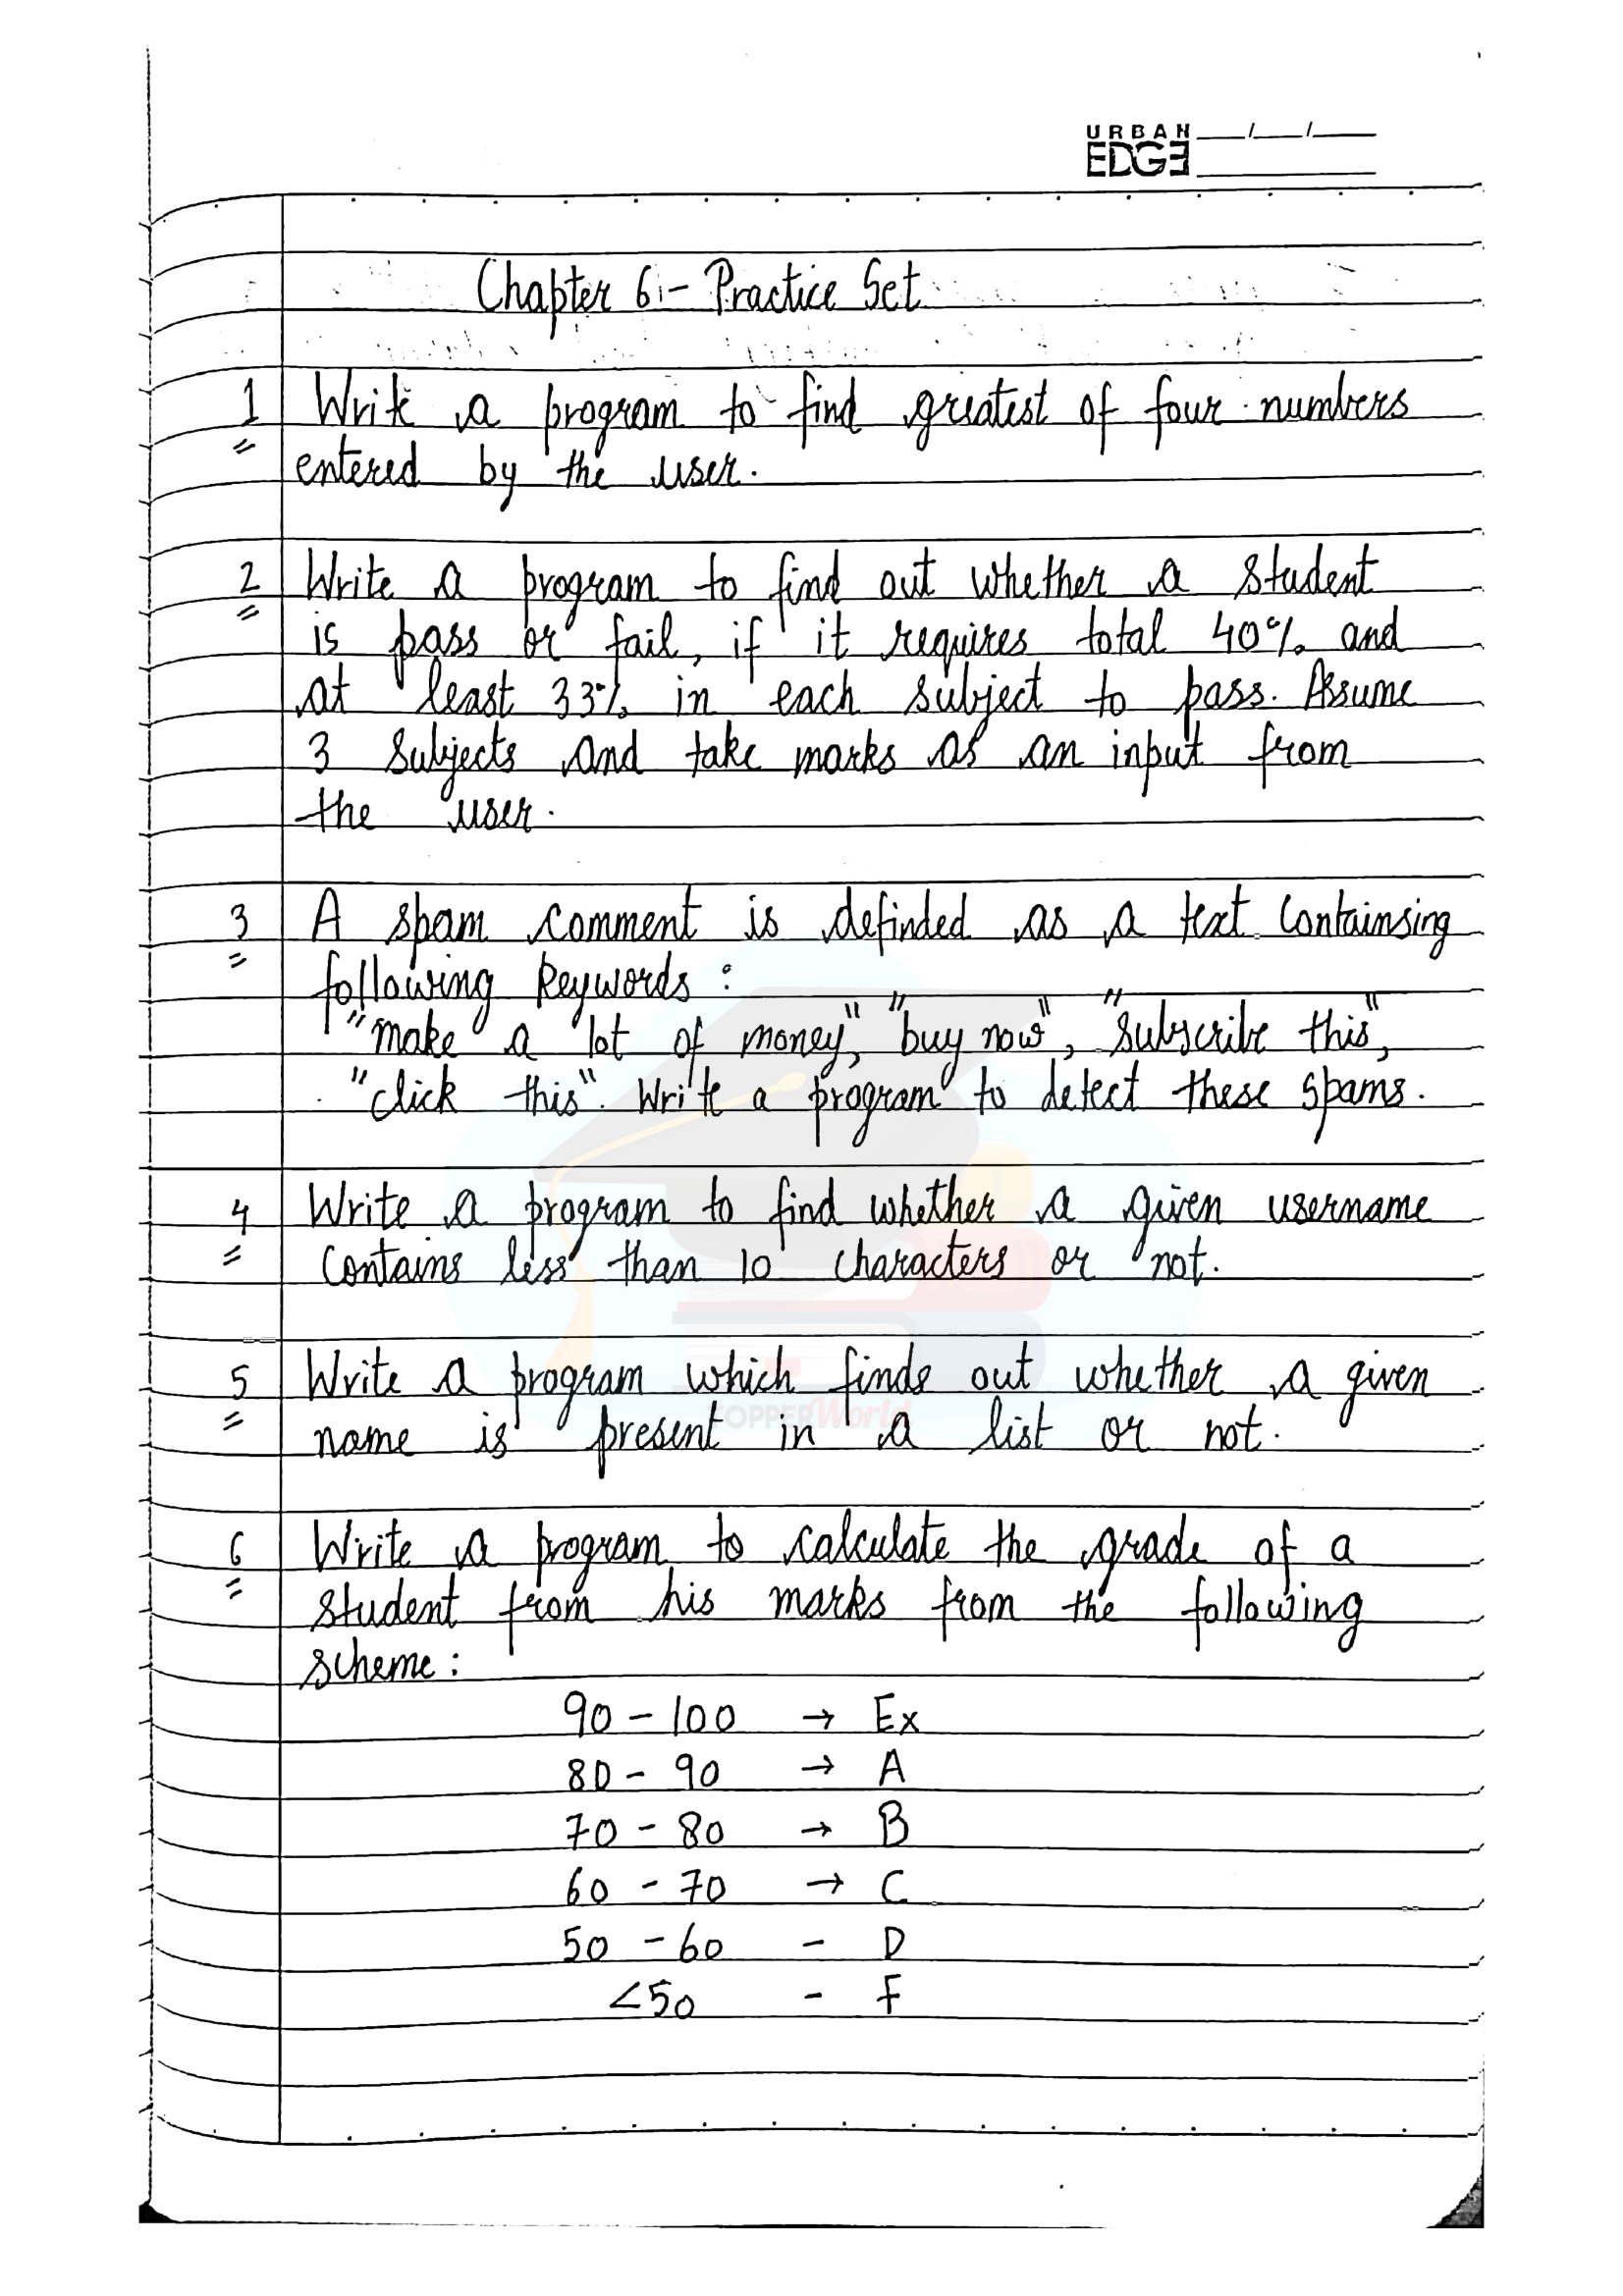 URBAN
EDGE
Chapter 6:- Practice Set
1 Write a program to find greatest of four numbers
entered by the user.
2 Write a program to find out whether a student
is pass or fail, if it requires total 40% and
at least 33% in each subject to pass. Assume
3 subjects and take marks as an input from
the user.
3 A spam comment is definded as a text containsing
following keywords :
"make a lot of money", "buy now", "subscribe this",
"click this". Write a program to detect these spams.
4 Write a program to find whether a given username
contains less than 10 characters or not.
5 Write a program which finds out whether a given
name is present in a list or not.
TOPPERWorld
6 Write a program to calculate the grade of a
student from his marks from the following
scheme :
90 - 100 → Ex
80 - 90 → A
70 - 80 → B
60 - 70 → C
50 - 60 - D
<50 - F